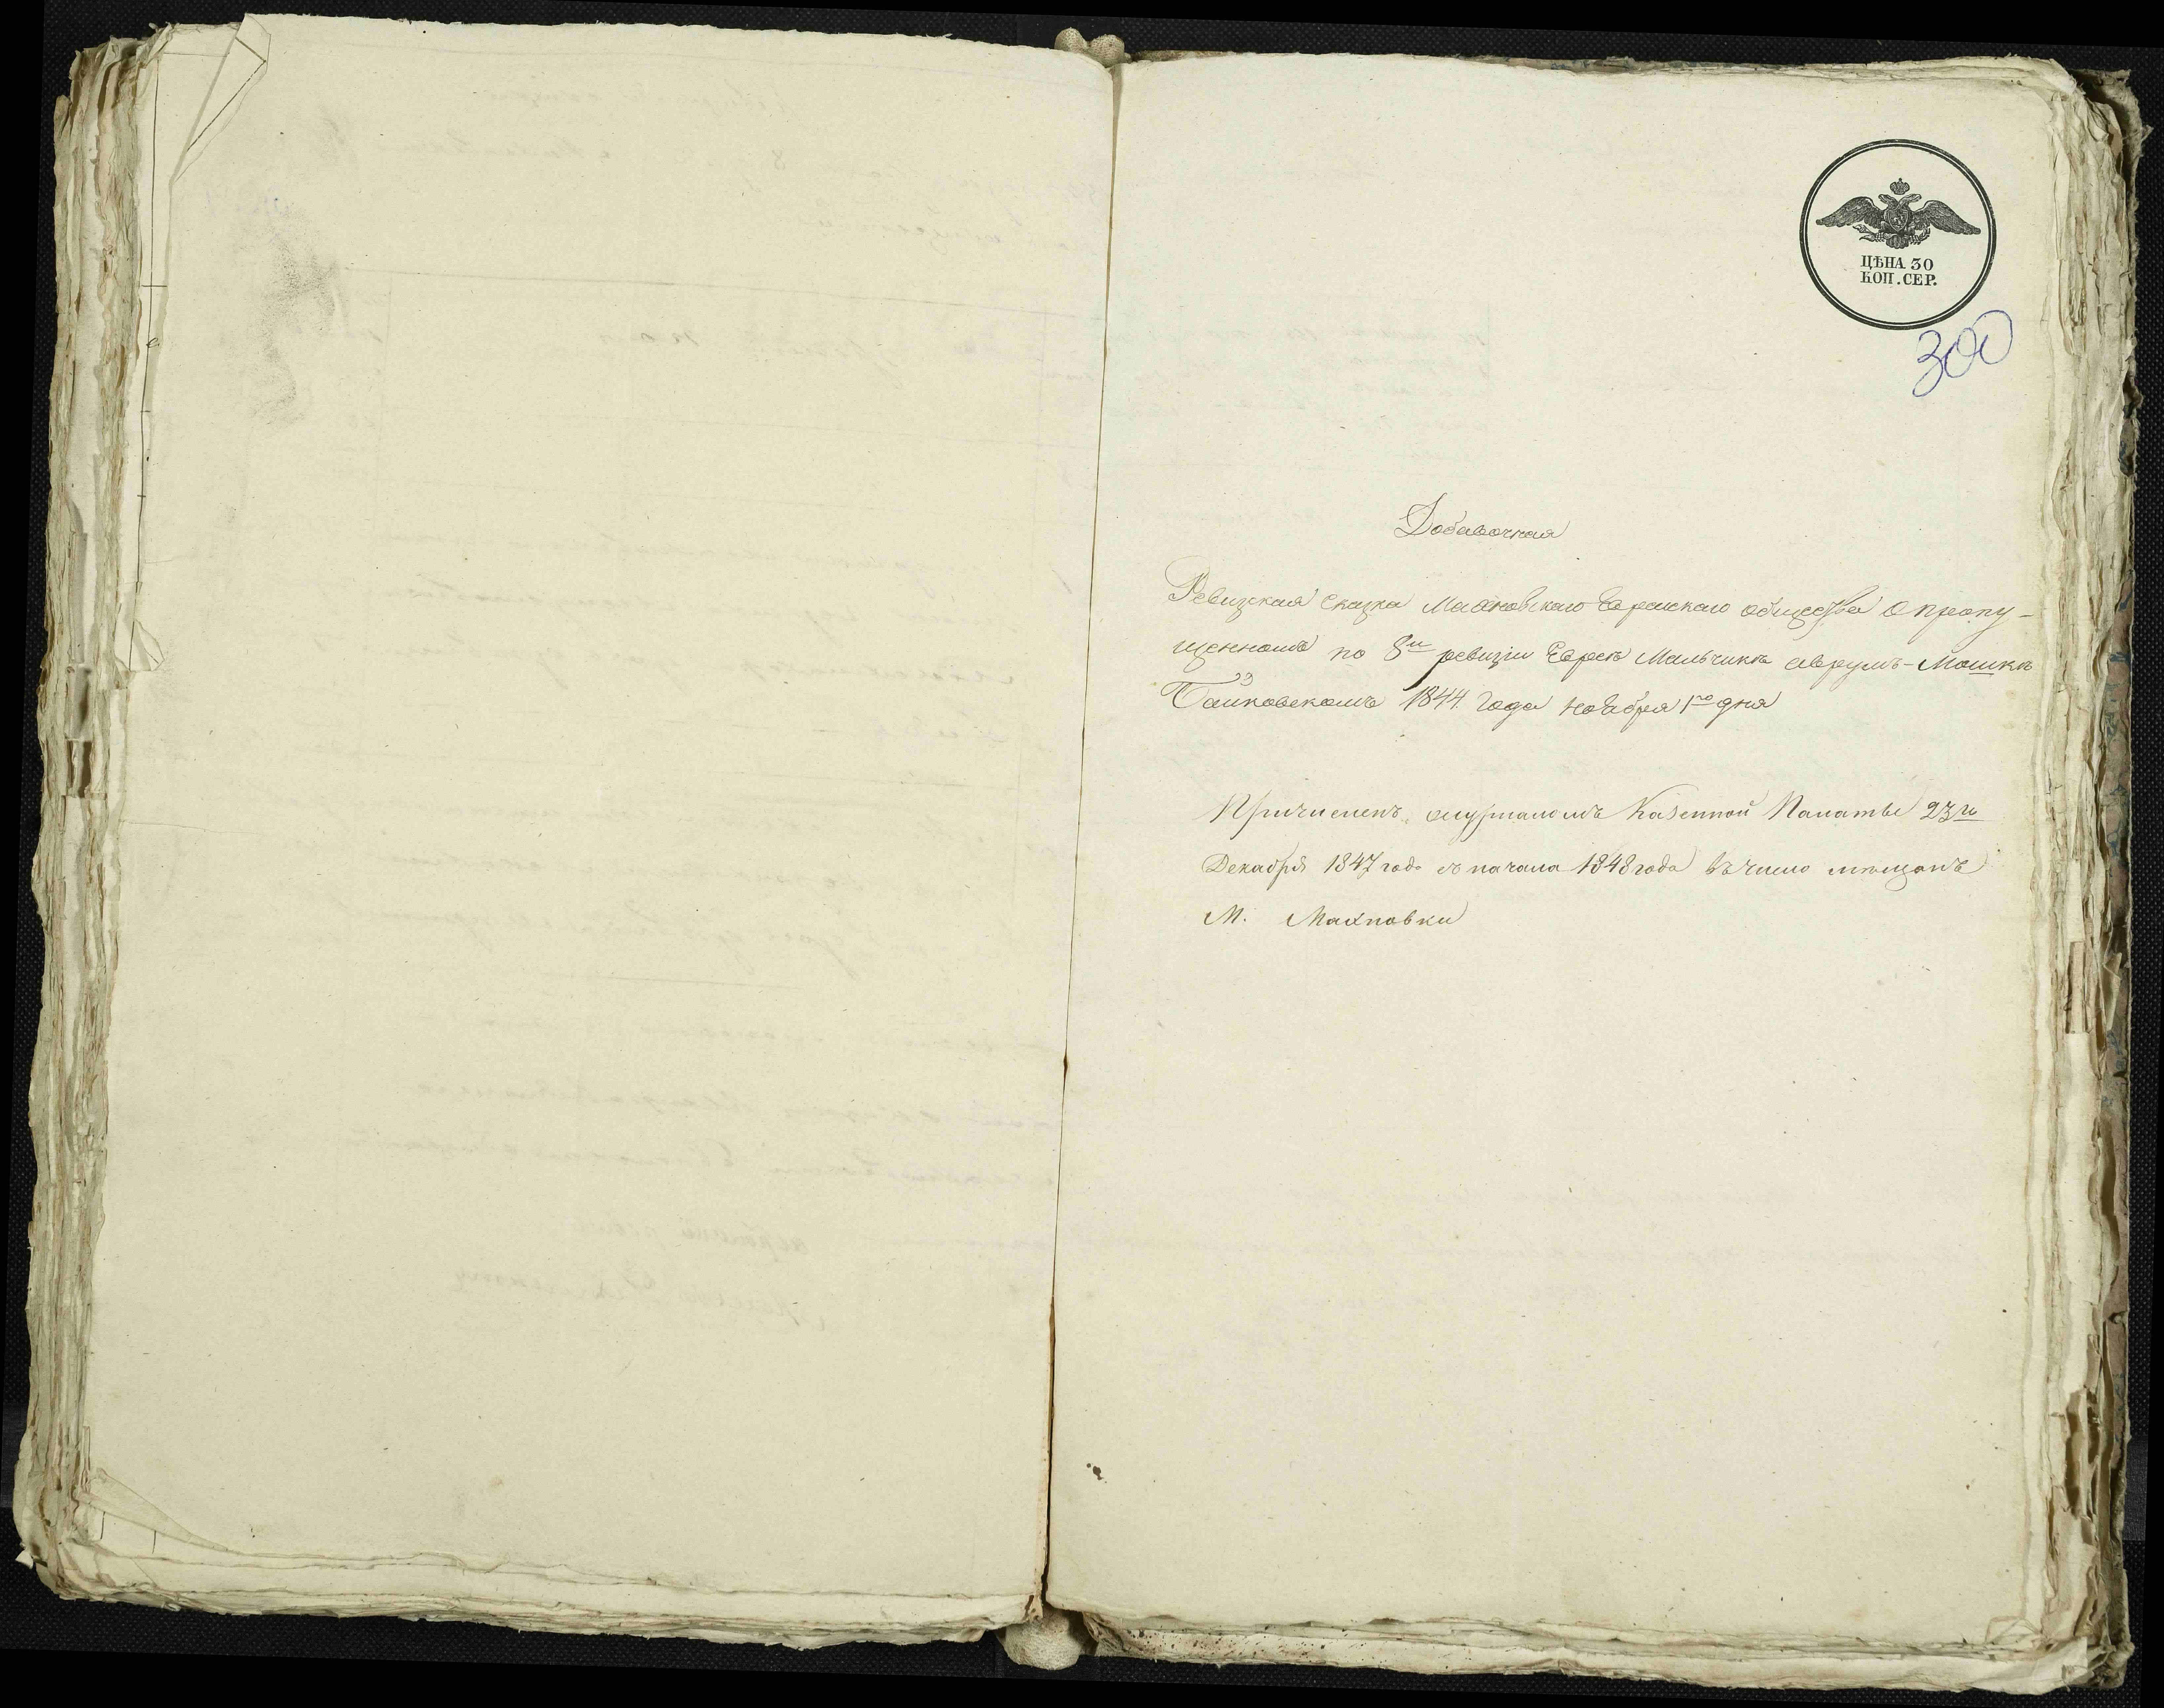 ЦѢНА 30
КОП. СЕР.
300
Добавочная
Ревизская сказка Махновскаго Еврейскаго общества о пропу-
щенномъ по 8й ревизіи Еврея Мальчикѣ Аврумъ-Мошкѣ
1844 года ноября 1го дня
Причисленъ журналомъ Казенной Палаты 23го
Декабря 1847 года съ начала 1848 года въ число мѣщанъ
М. Махновки